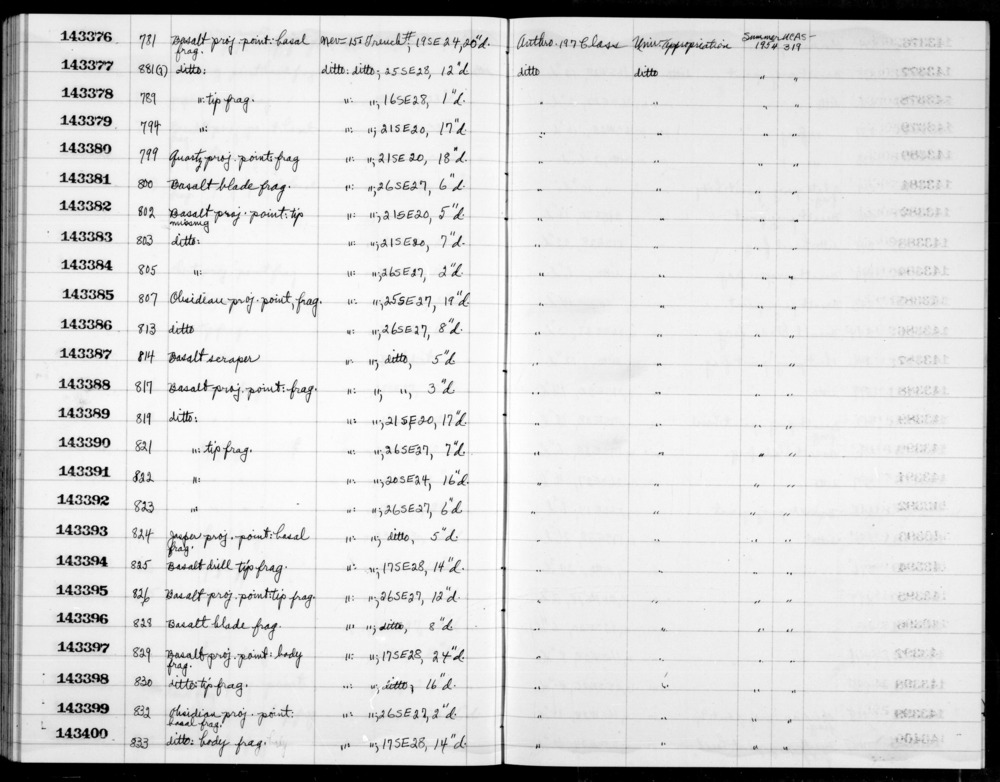 143376 781 Basalt proj. point: basal frag. Nev-15: Trench #, 19SE24, 20"d. Anthro. 197 Class Univ. Appropriation Summer 1954 UCAS-319
143377 881(?) ditto: ditto: ditto; 25SE28, 12"d ditto ditto " "
143378 789 ": tip frag. ": "; 16SE28, 1"d. " " " "
143379 794 ": ": "; 21SE20, 17"d. " " " "
143380 799 Quartz proj. point: frag ": "; 21SE20, 18"d. " " " "
143381 800 Basalt blade frag. ": "; 26SE27, 6"d. " " " "
143382 802 Basalt proj. point: tip missing ": "; 21SE20, 5"d. " " " "
143383 803 ditto: ": "; 21SE20, 7"d. " " " "
143384 805 ": ": "; 26SE27, 2"d. " " " "
143385 807 Obsidian proj. point, frag. ": "; 25SE27, 19"d. " " " "
143386 813 ditto ": "; 26SE27, 8"d. " " " "
143387 814 Basalt scraper ": "; ditto, 5"d. " " " "
143388 817 Basalt proj. point: frag. ": "; ", 3"d. " " " "
143389 819 ditto: ": "; 21SE20, 17"d. " " " "
143390 821 ": tip frag. ": "; 26SE27, 7"d. " " " "
143391 822 ": ": "; 20SE24, 16"d. " " " "
143392 823 " ": "; 26SE27, 6"d. " " " "
143393 824 Jasper proj. point: basal frag. ": "; ditto, 5"d. " " " "
143394 825 Basalt drill tip frag. ": "; 17SE28, 14"d. " " " "
143395 826 Basalt proj. point: tip frag. ": "; 26SE27, 12"d. " " " "
143396 828 Basalt blade frag. ": "; ditto, 8"d. " " " "
143397 829 Basalt proj. point: body frag. ": "; 17SE28, 24"d. " " " "
143398 830 ditto: tip frag. ": "; ditto, 16"d. " " " "
143399 832 Obsidian proj. point: basal frag. ": "; 26SE27, 2"d. " " " "
143400 833 ditto: body frag. ": "; 17SE28, 14"d. " " " "